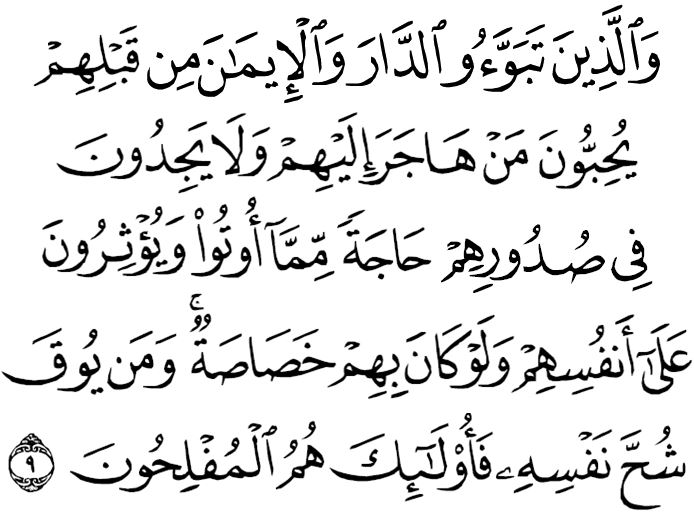 وَٱلَّذِينَ تَبَوَّءُو ٱلدَّارَ وَٱلْإِيمَٰنَ مِن قَبْلِهِمْ
يُحِبُّونَ مَنْ هَاجَرَ إِلَيْهِمْ وَلَا يَجِدُونَ
فِى صُدُورِهِمْ حَاجَةً مِّمَّآ أُوتُوا۟ وَيُؤْثِرُونَ
عَلَىٰٓ أَنفُسِهِمْ وَلَوْ كَانَ بِهِمْ خَصَاصَةٌ ۚ وَمَن يُوقَ
شُحَّ نَفْسِهِۦ فَأُو۟لَٰٓئِكَ هُمُ ٱلْمُفْلِحُونَ ٩